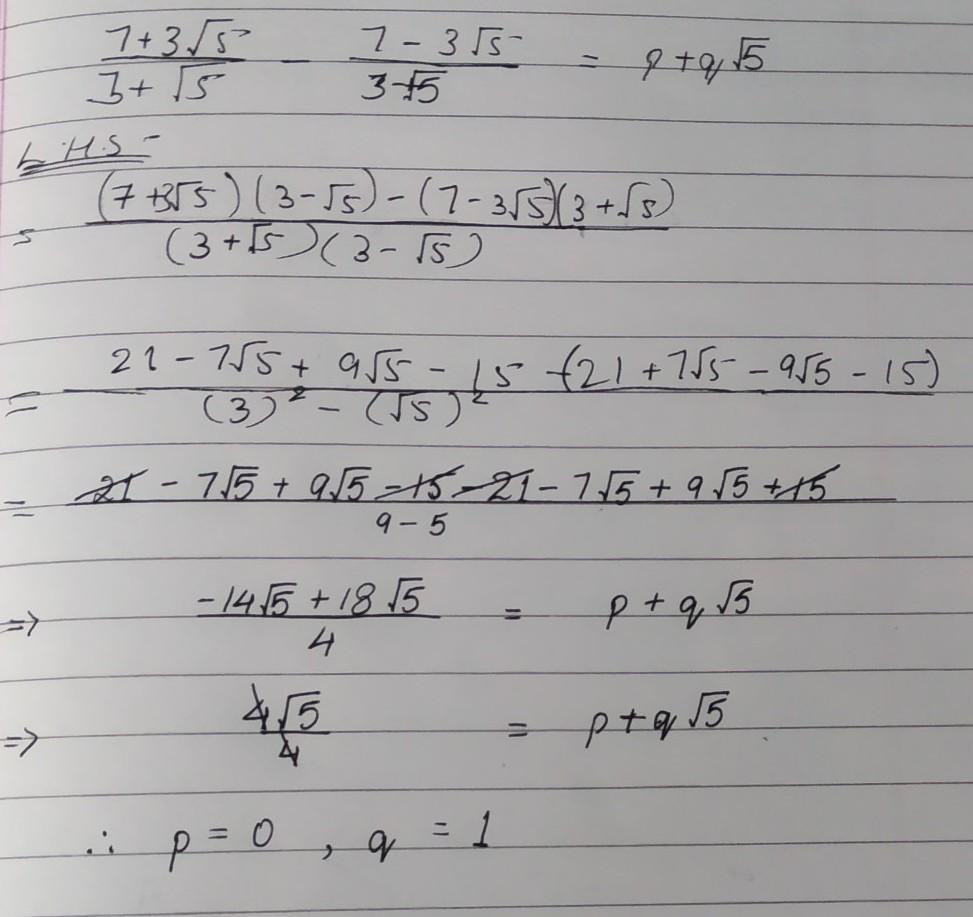 (7+3√5)/(3+√5) - (7-3√5)/(3-√5) = p+q√5
L.H.S-
= ((7+3√5)(3-√5)-(7-3√5)(3+√5))/((3+√5)(3-√5))
= (21-7√5+9√5-15-(21+7√5-9√5-15))/((3)²-(√5)²)
= (21-7√5+9√5-15-21-7√5+9√5+15)/(9-5)
⇒ (-14√5+18√5)/4 = p+q√5
⇒ 4√5/4 = p+q√5
∴ p=0, q=1